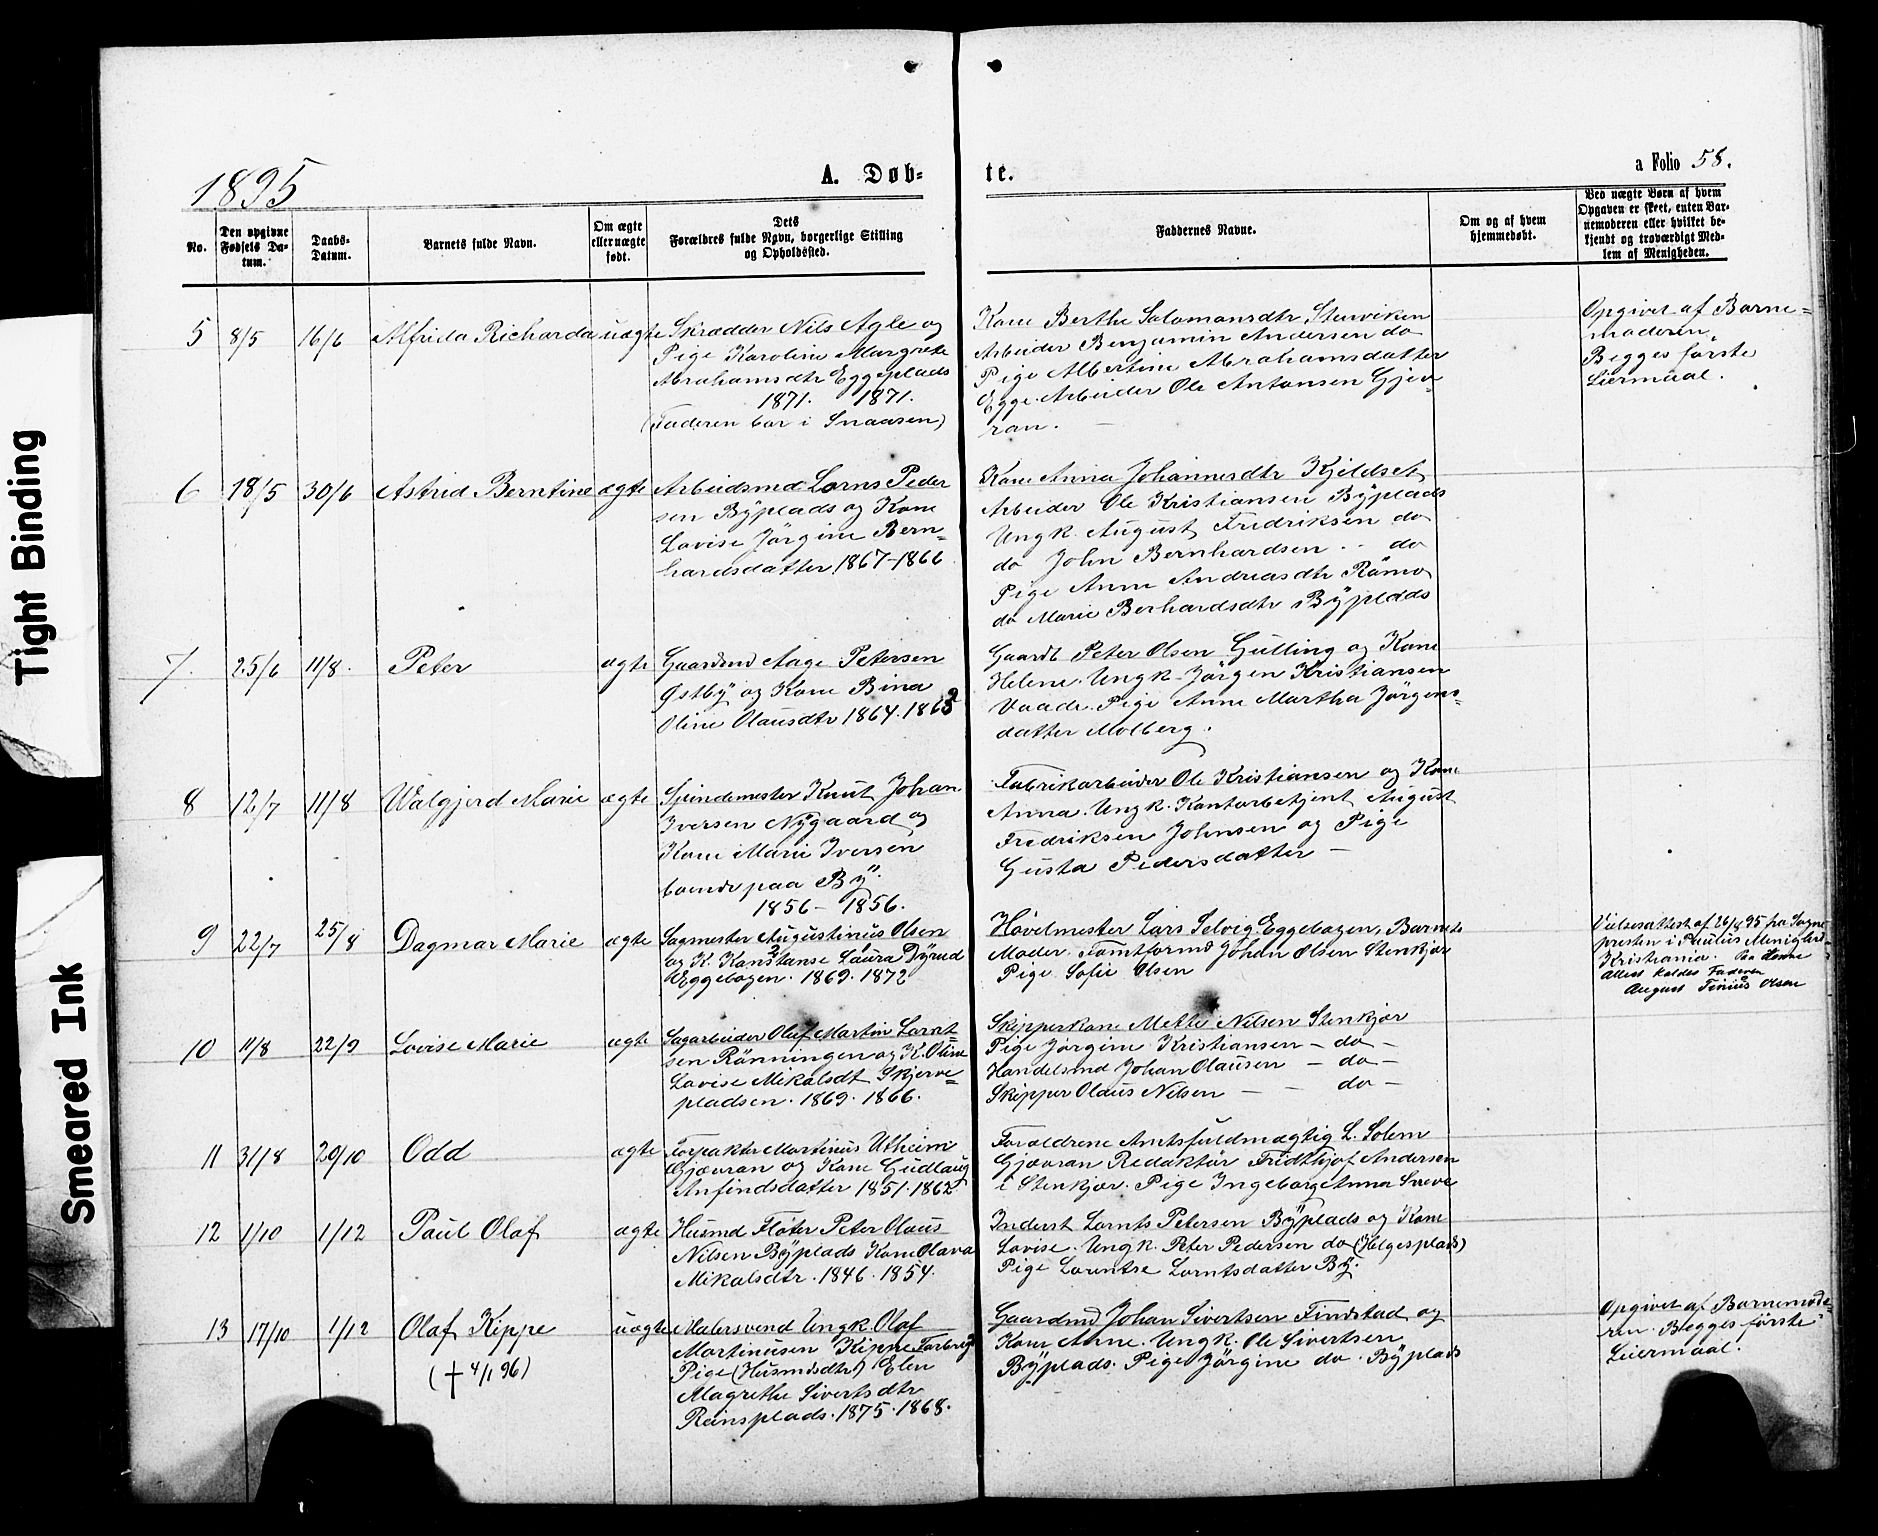 1895
A. Døb-
te.
a Folio 58.
No.
Den opgivne
Fødsels Da-
tum.
Daabs-
Datum.
Barnets fulde Navn.
Om ægte
eller uægte
født.
Dets
Forældres fulde Navn, borgerlige Stilling
og Opholdssted.
Faddernes Navne.
Om og af hvem
hjemmedøbt.
Ved uægte Børn af hvem
Opgaven er skeet, enten Bar-
nemoderen eller hvilket be-
kjendt og troværdigt Med-
lem af Menigheden.
5 8/5 16/6 Alfrida Richarda uægte
Skrædder Nils Agle og
Pige Karoline Margrete
Abrahamsdtr Eggeplads
1871. 1871.
(Faderen bor i Snaasen)
Kone Berthe Salomonsdtr Stenviken
Arbeider Benjamin Andersen do
Pige Albertine Abrahamsdatter
Egge. Arbeider Ole Antonsen Gjev-
ran. —
Opgivet af Barne-
moderen,
Begges første
Leiermaal.
6 18/5 30/6 Astrid Berntine ægte
Arbeidsmd Lorns Peder
sen Byplads og Kone
Lovise Jørgine Bern-
hardsdatter 1867-1866
Kone Anna Johannesdtr Kjeldset
Arbeider Ole Kristiansen Byplads
Ungk. August Fredriksen do
do John Bernhardsen. - do
Pige Anne Andreasdtr Rømo
do Marie Berhardsdtr Byplads
7. 25/6 11/8. Peter ægte
Gaardmd Aage Petersen
Østby og Kone Bina
Oline Olausdtr 1864. 1863
Gaardb Peter Olsen Gulling og Kone
Helene. Ungk. Jørgen Kristiansen
Vaade. Pige Anne Martha Jørgens-
datter Molberg.
8 12/7 11/8 Walgjerd Marie ægte
Spindemester Knut Johan
Iversen Nygaard og
Kone Marie Iversen
boende paa By.
1856 - 1856.
Fabrikarbeider Ole Kristiansen og Kone
Anna. Ungk. Kontorbetjent August
Fredriksen Johnsen og Pige
Gusta Pedersdatter —
9 22/7 25/8 Dagmar Marie ægte
Sagmester Augustinus Olsen
og K. Konstanse Laura Dyrud
Eggebogen. 1869. 1872
Høvelmester Lars Selvig Eggebogen, Barnets
Moder. Tomtformd Johan Olsen Stenkjær
Pige Sofie Olsen
Vielsesattest af 26/8 95 fra Sogne
presten i Paulus Menighed
Kristiania. Paa denne
Attest kaldes Faderen
August Tinius Olsen
10 11/8 22/9 Lovise Marie ægte
Sagarbeider Oluf Martin Lornt
sen Rønningen og K. Oline
Lovise Mikalsdt Skjerve-
pladsen. 1869. 1866.
Skipperkone Mette Nilsen Stenkjær
Pige Jørgine Kristiansen - do -
Handelsmd Johan Olausen - do -
Skipper Olaus Nilsen — — do -
11 31/8 20/10 Odd ægte
Forpakter Martinus Utheim
Gjævran og Kone Gudlaug
Anfindsdatter 1851. 1862
Forældrene Amtsfuldmægtig L. Solem
Gjævran Redaktør Fridthjof Andersen
i Stenkjær. Pige Ingeborg Anna
12 1/10 1/12 Paul Olaf ægte
Husmd Fløter Peter Olaus
Nilsen Byplads Kone Olava
Mikalsdtr. 1846. 1854.
Inderst Lornts Petersen Byplads og Kone
Lovise. Ungk. Peter Pedersen do (Helgesplads)
Pige Lorentse Lorntsdatter By.
13 17/10 1/12 Olaf Kippe uægte
(† 4/1 96)
Malersvend Ungk. Olaf
Martinusen Kippe
Pige (Husmdsdtr) Elen
Magrethe Sivertsdtr
Reinsplads. 1875. 1868.
Gaardmd Johan Sivertsen Findstad og
Kone Anne. Ungk. Ole Sivertsen
Byplads. Pige Jørgine do. Byplads
Opgivet af Barnemode-
ren. Begges første
Leiermaal.
Tight Binding
Smeared Ink